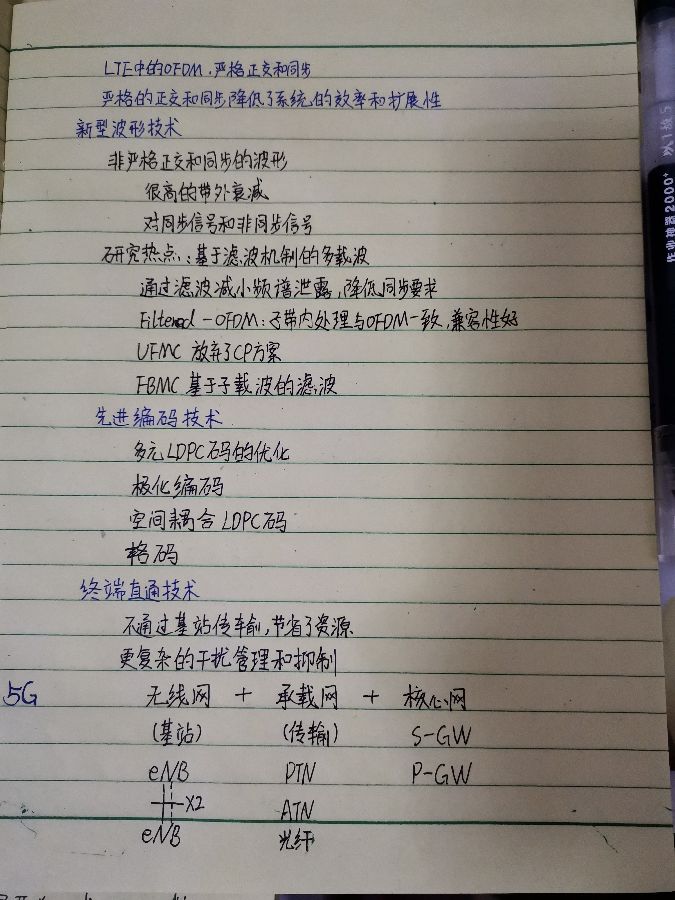 LTE中的OFDM，严格正交和同步
严格的正交和同步降低了系统的效率和扩展性
新型波形技术
非严格正交和同步的波形
很高的带外衰减
对同步信号和非同步信号
研究热点：基于滤波机制的多载波
通过滤波减小频谱泄露，降低同步要求
Filtered-OFDM：子带内处理与OFDM一致，兼容性好
UFMC 放弃了CP方案
FBMC 基于子载波的滤波
先进编码技术
多元LDPC码的优化
极化编码
空间耦合LDPC码
格码
终端直通技术
不通过基站传输，节省了资源
更复杂的干扰管理和抑制
5G 无线网 + 承载网 + 核心网
(基站) (传输) S-GW
eNB PTN P-GW
X2 ATN
eNB 光纤
作业神器2000+